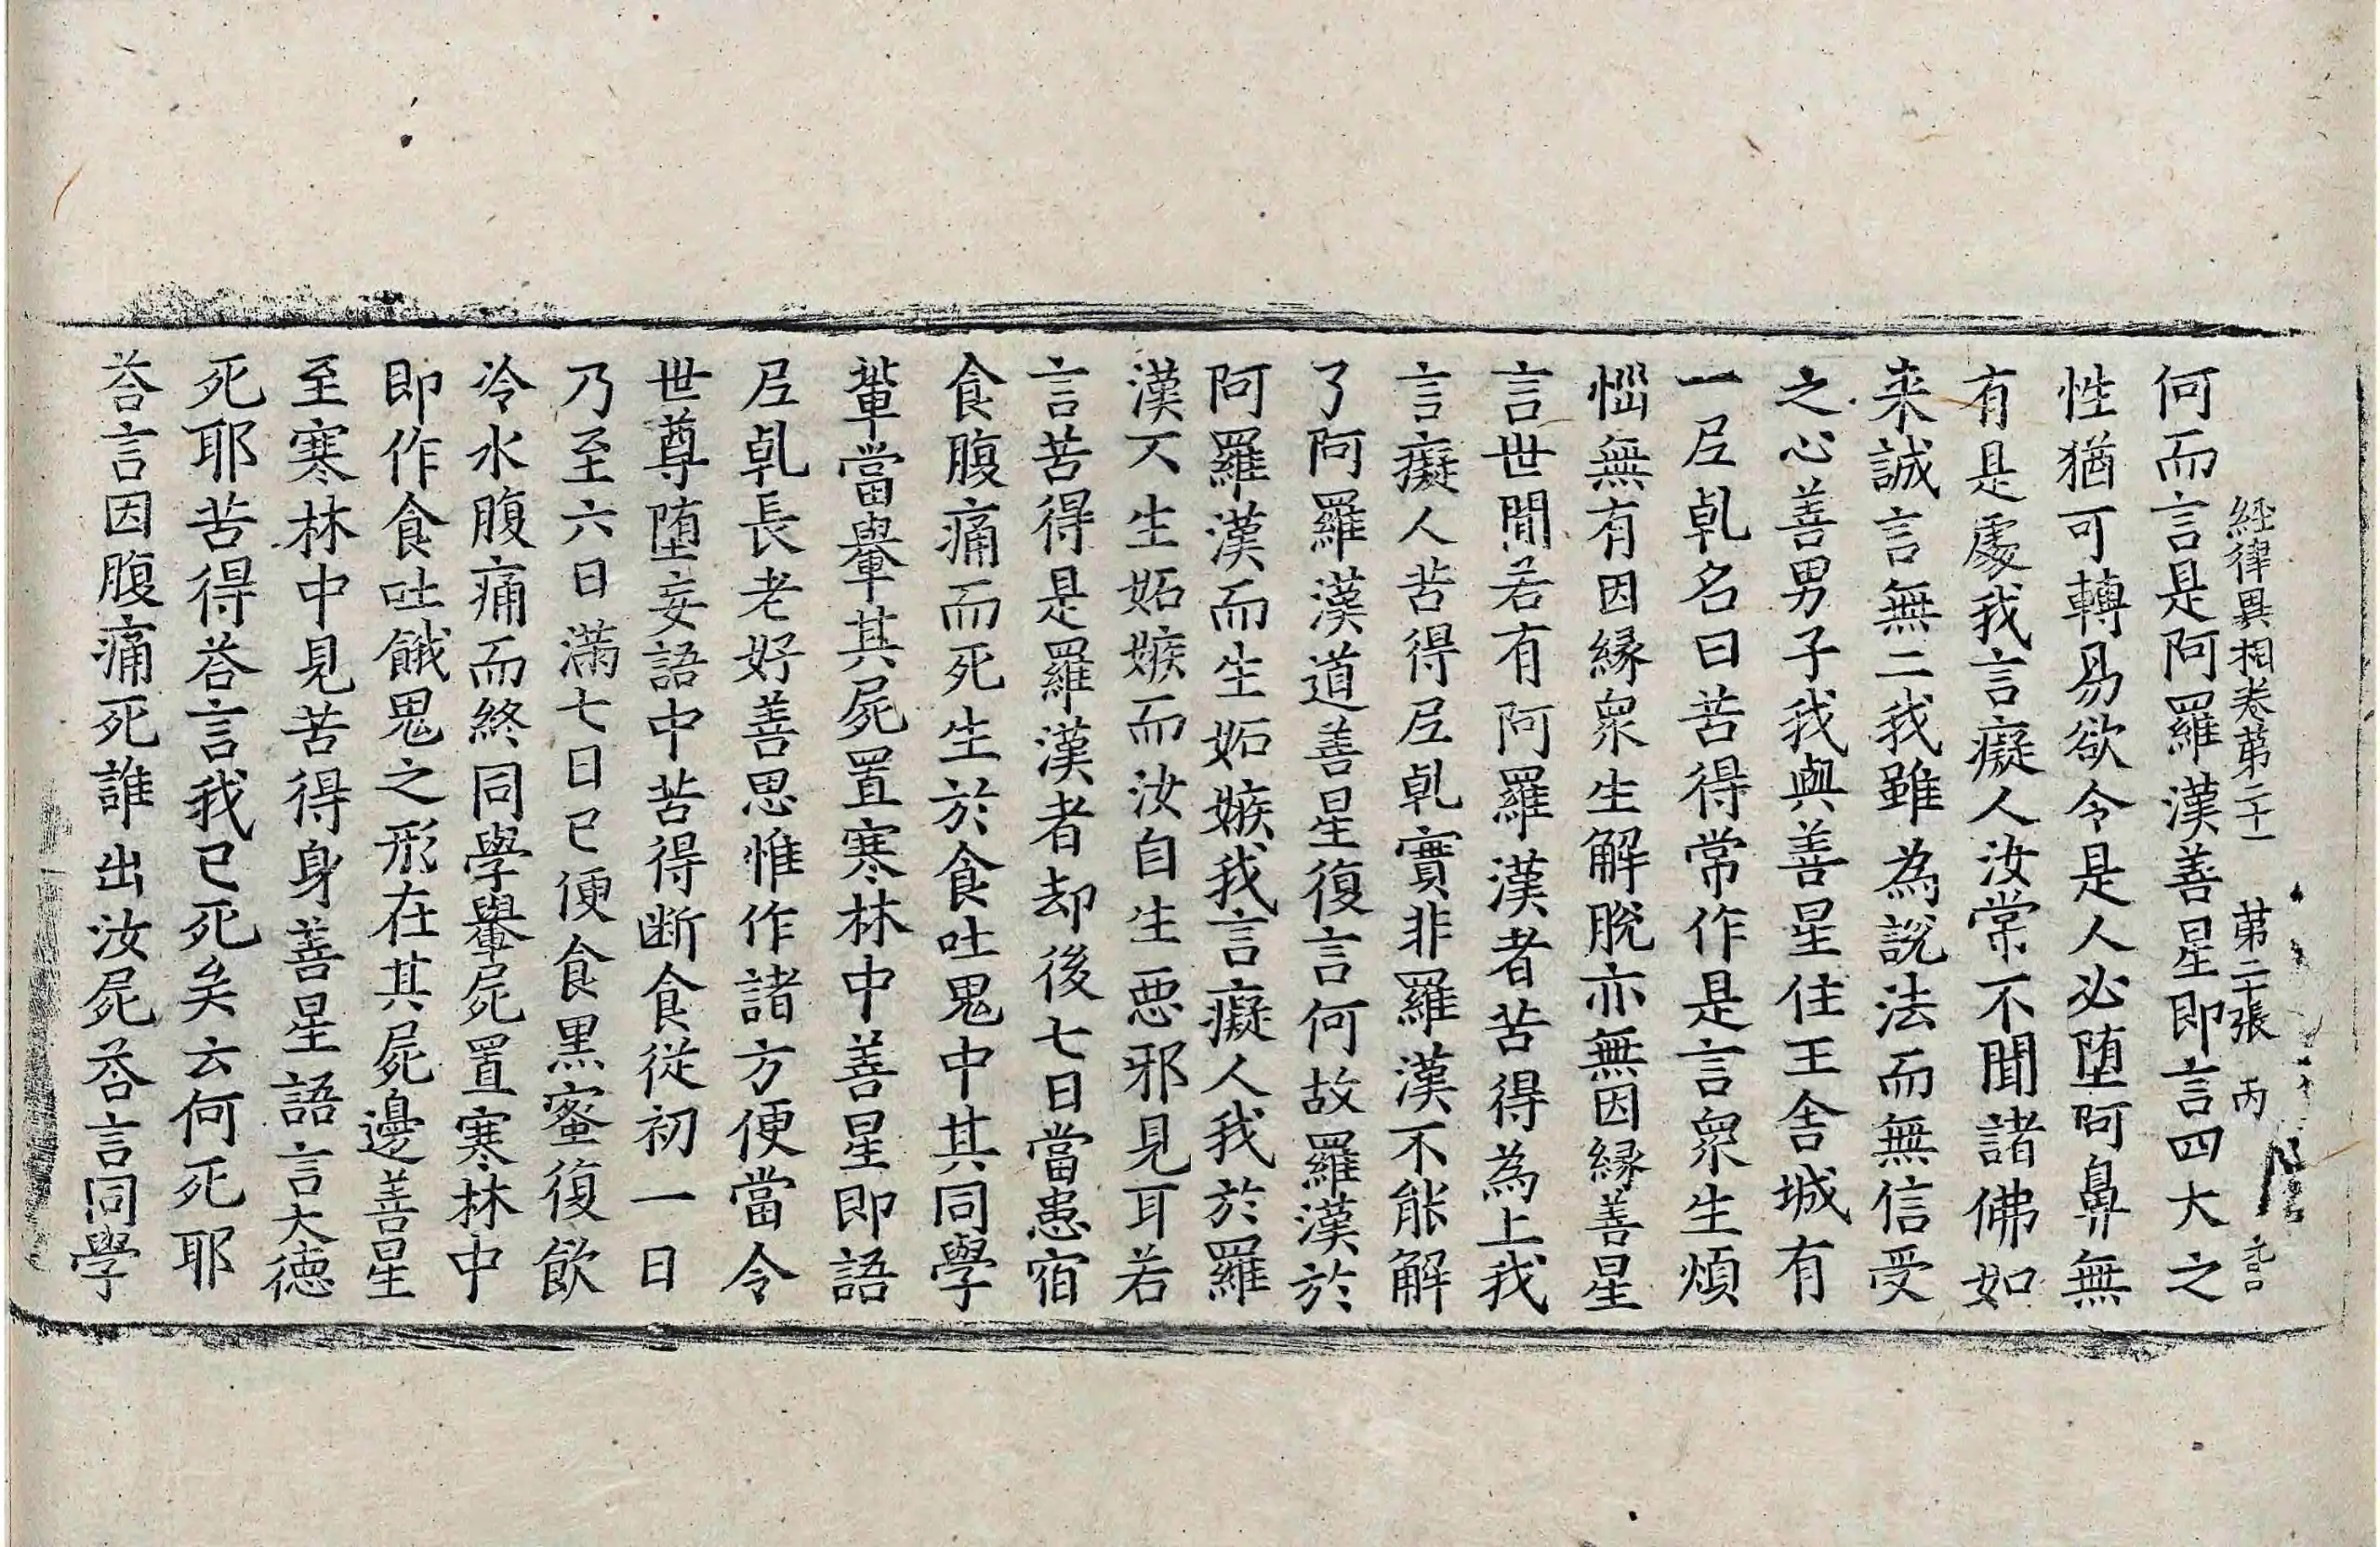 經律異相卷第二十一 第二十張 丙
何而言是阿羅漢善星即言四大之
性猶可轉易欲令是人必堕阿鼻無
有是處我言癡人汝常不聞諸佛如
来誠言無二我雖為說法而無信受
之心善男子我與善星住王舍城有
一𡰱乹名曰苦得常作是言衆生煩
惱無有因縁衆生解脫亦無因縁善星
言世間若有阿羅漢者苦得為上我
言癡人苦得𡰱乹實非羅漢不能解
了阿羅漢道善星復言何故羅漢於
阿羅漢而生妬嫉我言癡人我於羅
漢不生妬嫉而汝自生惡邪見耳若
言苦得是羅漢者却後七日當患宿
食腹痛而死生於食吐鬼中其同學
輩當轝其屍置寒林中善星即語
𡰱乹長老好善思惟作諸方便當令
世尊堕妄語中苦得断食從初一日
乃至六日滿七日已便食黒蜜復飲
冷水腹痛而終同學轝屍置寒林中
即作食吐餓鬼之形在其屍邊善星
至寒林中見苦得身善星語言大德
死耶苦得荅言我已死矣云何死耶
荅言因腹痛死誰出汝屍荅言同學